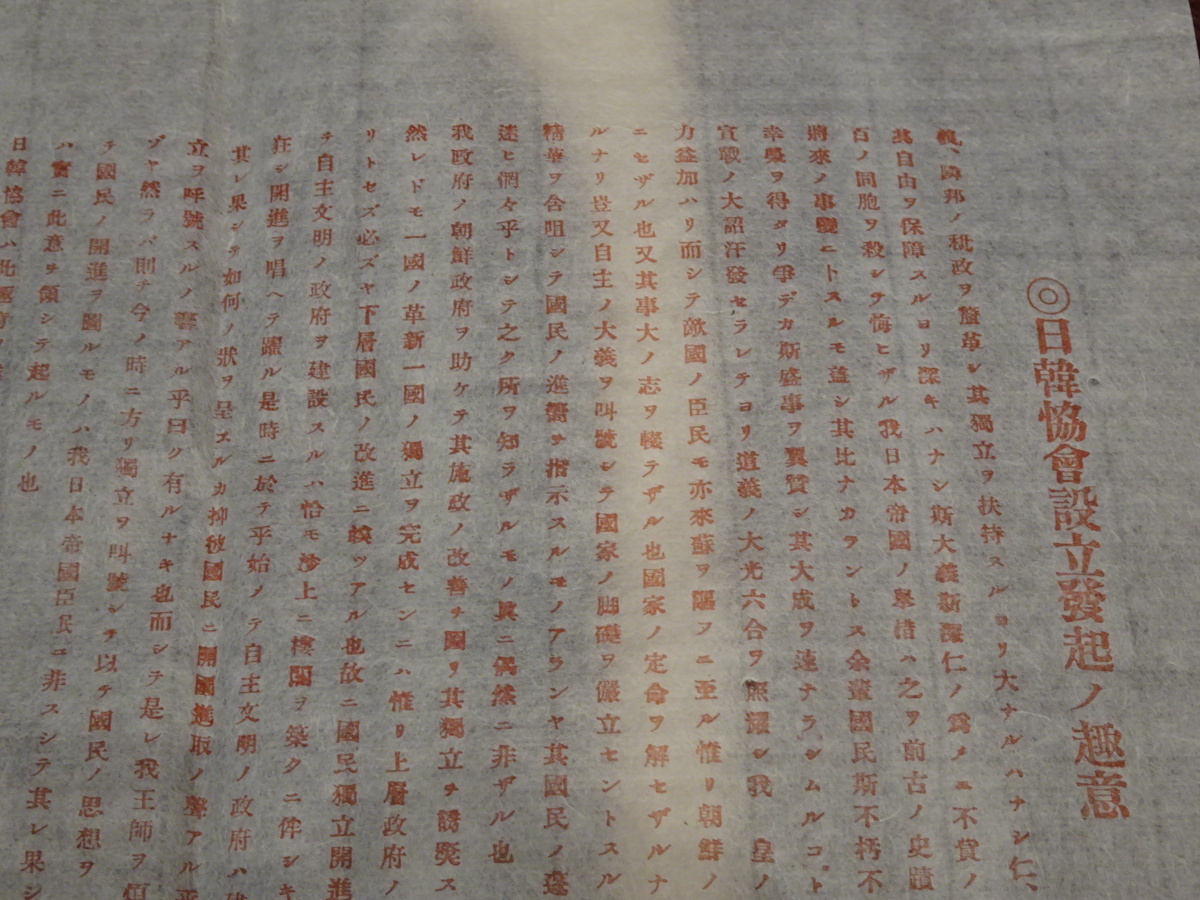 ◎日韓協會設立發起ノ趣意
義、隣邦ノ秕政ヲ釐革シ其獨立ヲ扶持スルヨリ大ナルハナシ仁、
其自由ヲ保障スルヨリ深キハナシ斯大義斯深仁ノ爲メニ不貲ノ
百ノ同胞ヲ殺シテ悔ヒザル我日本帝國ノ擧措ハ之ヲ前古ノ史蹟
將來ノ事變ニトスルモ蓋シ其比ナカラントス余輩國民斯不朽不
幸榮ヲ得タリ爭デカ斯盛事ヲ翼賛シ其大成ヲ速ナラシムルコト
宣戰ノ大詔汗發セラレテヨリ道義ノ大光六合ヲ照耀シ我 皇ノ
力益加ハリ而シテ敵國ノ臣民モ亦來蘇ヲ謳フニ至ル惟リ朝鮮ノ
ニセザル也又其事大ノ志ヲ輟テザル也國家ノ定命ヲ解セザルナ
ルナリ豈又自主ノ大義ヲ叫號シテ國家ノ脚礎ヲ儼立セントスル
精華ヲ含咀シテ國民ノ進嚮ヲ指示スルモノアランヤ其國民ノ
迷ヒ倀々乎トシテ之ク所ヲ知ラザルモノ眞ニ偶然ニ非ザル也
我政府ノ朝鮮政府ヲ助ケテ其施政ノ改善ヲ圖リ其獨立ヲ誘奬ス
然レドモ一國ノ革新一國ノ獨立ヲ完成センニハ惟リ上層政府ノ
リトセズ必ズヤ下層國民ノ改進ニ竢ツアル也故ニ國民獨立開進
チ自主文明ノ政府ヲ建設スルハ恰モ沙上ニ樓閣ヲ築クニ侔シキ
在シ開進ヲ唱ヘテ躍ル是時ニ於テ乎始メテ自主文明ノ政府ハ建
其レ果シテ如何ノ狀ヲ呈スルカ抑彼國民ニ開國進取ノ聲アル乎
立ヲ呼號スルノ響アル乎曰ク有ルナキ也而シテ是レ我王師ヲ煩
ヅヤ然ラバ則チ今ノ時ニ方リ獨立ヲ叫號シ以テ國民ノ思想ヲ
チ國民ノ開進ヲ圖ルモノハ我日本帝國臣民ニ非スシテ其レ果シ
ハ實ニ此意ヲ領シテ起ルモノ也
日韓協會ハ此